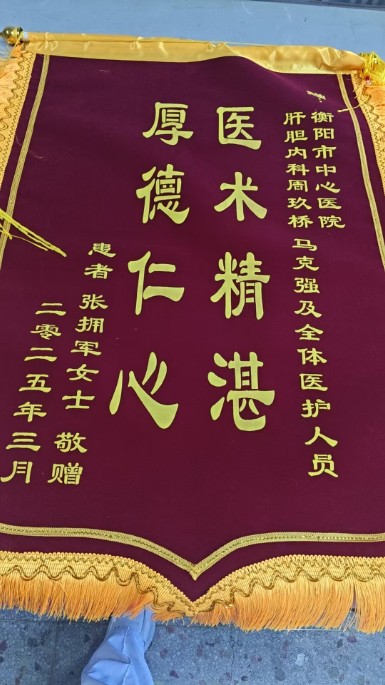 衡阳市中心医院
肝胆内科周玖桥 马克强及全体医护人员
医术精湛
厚德仁心
患者 张拥军女士 敬赠
二零二五年三月